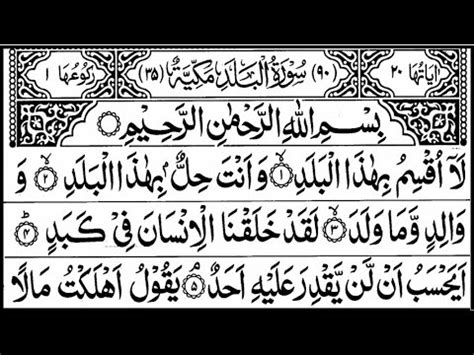 اٰيَاتُهَا ٢٠ (٩٠) سُوْرَةُ الْبَلَدِ مَكِّيَّةٌ (٣٥) رُكُوْعُهَا ١
بِسْمِ اللّٰهِ الرَّحْمٰنِ الرَّحِيْمِ
لَاۤ اُقْسِمُ بِهٰذَا الْبَلَدِ ۙ﴿١﴾ وَ اَنْتَ حِلٌّۢ بِهٰذَا الْبَلَدِ ۙ﴿٢﴾ وَ
وَالِدٍ وَّمَا وَلَدَ ۙ﴿٣﴾ لَقَدْ خَلَقْنَا الْاِنْسَانَ فِيْ كَبَدٍ ؕ﴿٤﴾
اَيَحْسَبُ اَنْ لَّنْ يَّقْدِرَ عَلَيْهِ اَحَدٌ ۘ﴿٥﴾ يَقُوْلُ اَهْلَكْتُ مَالًا